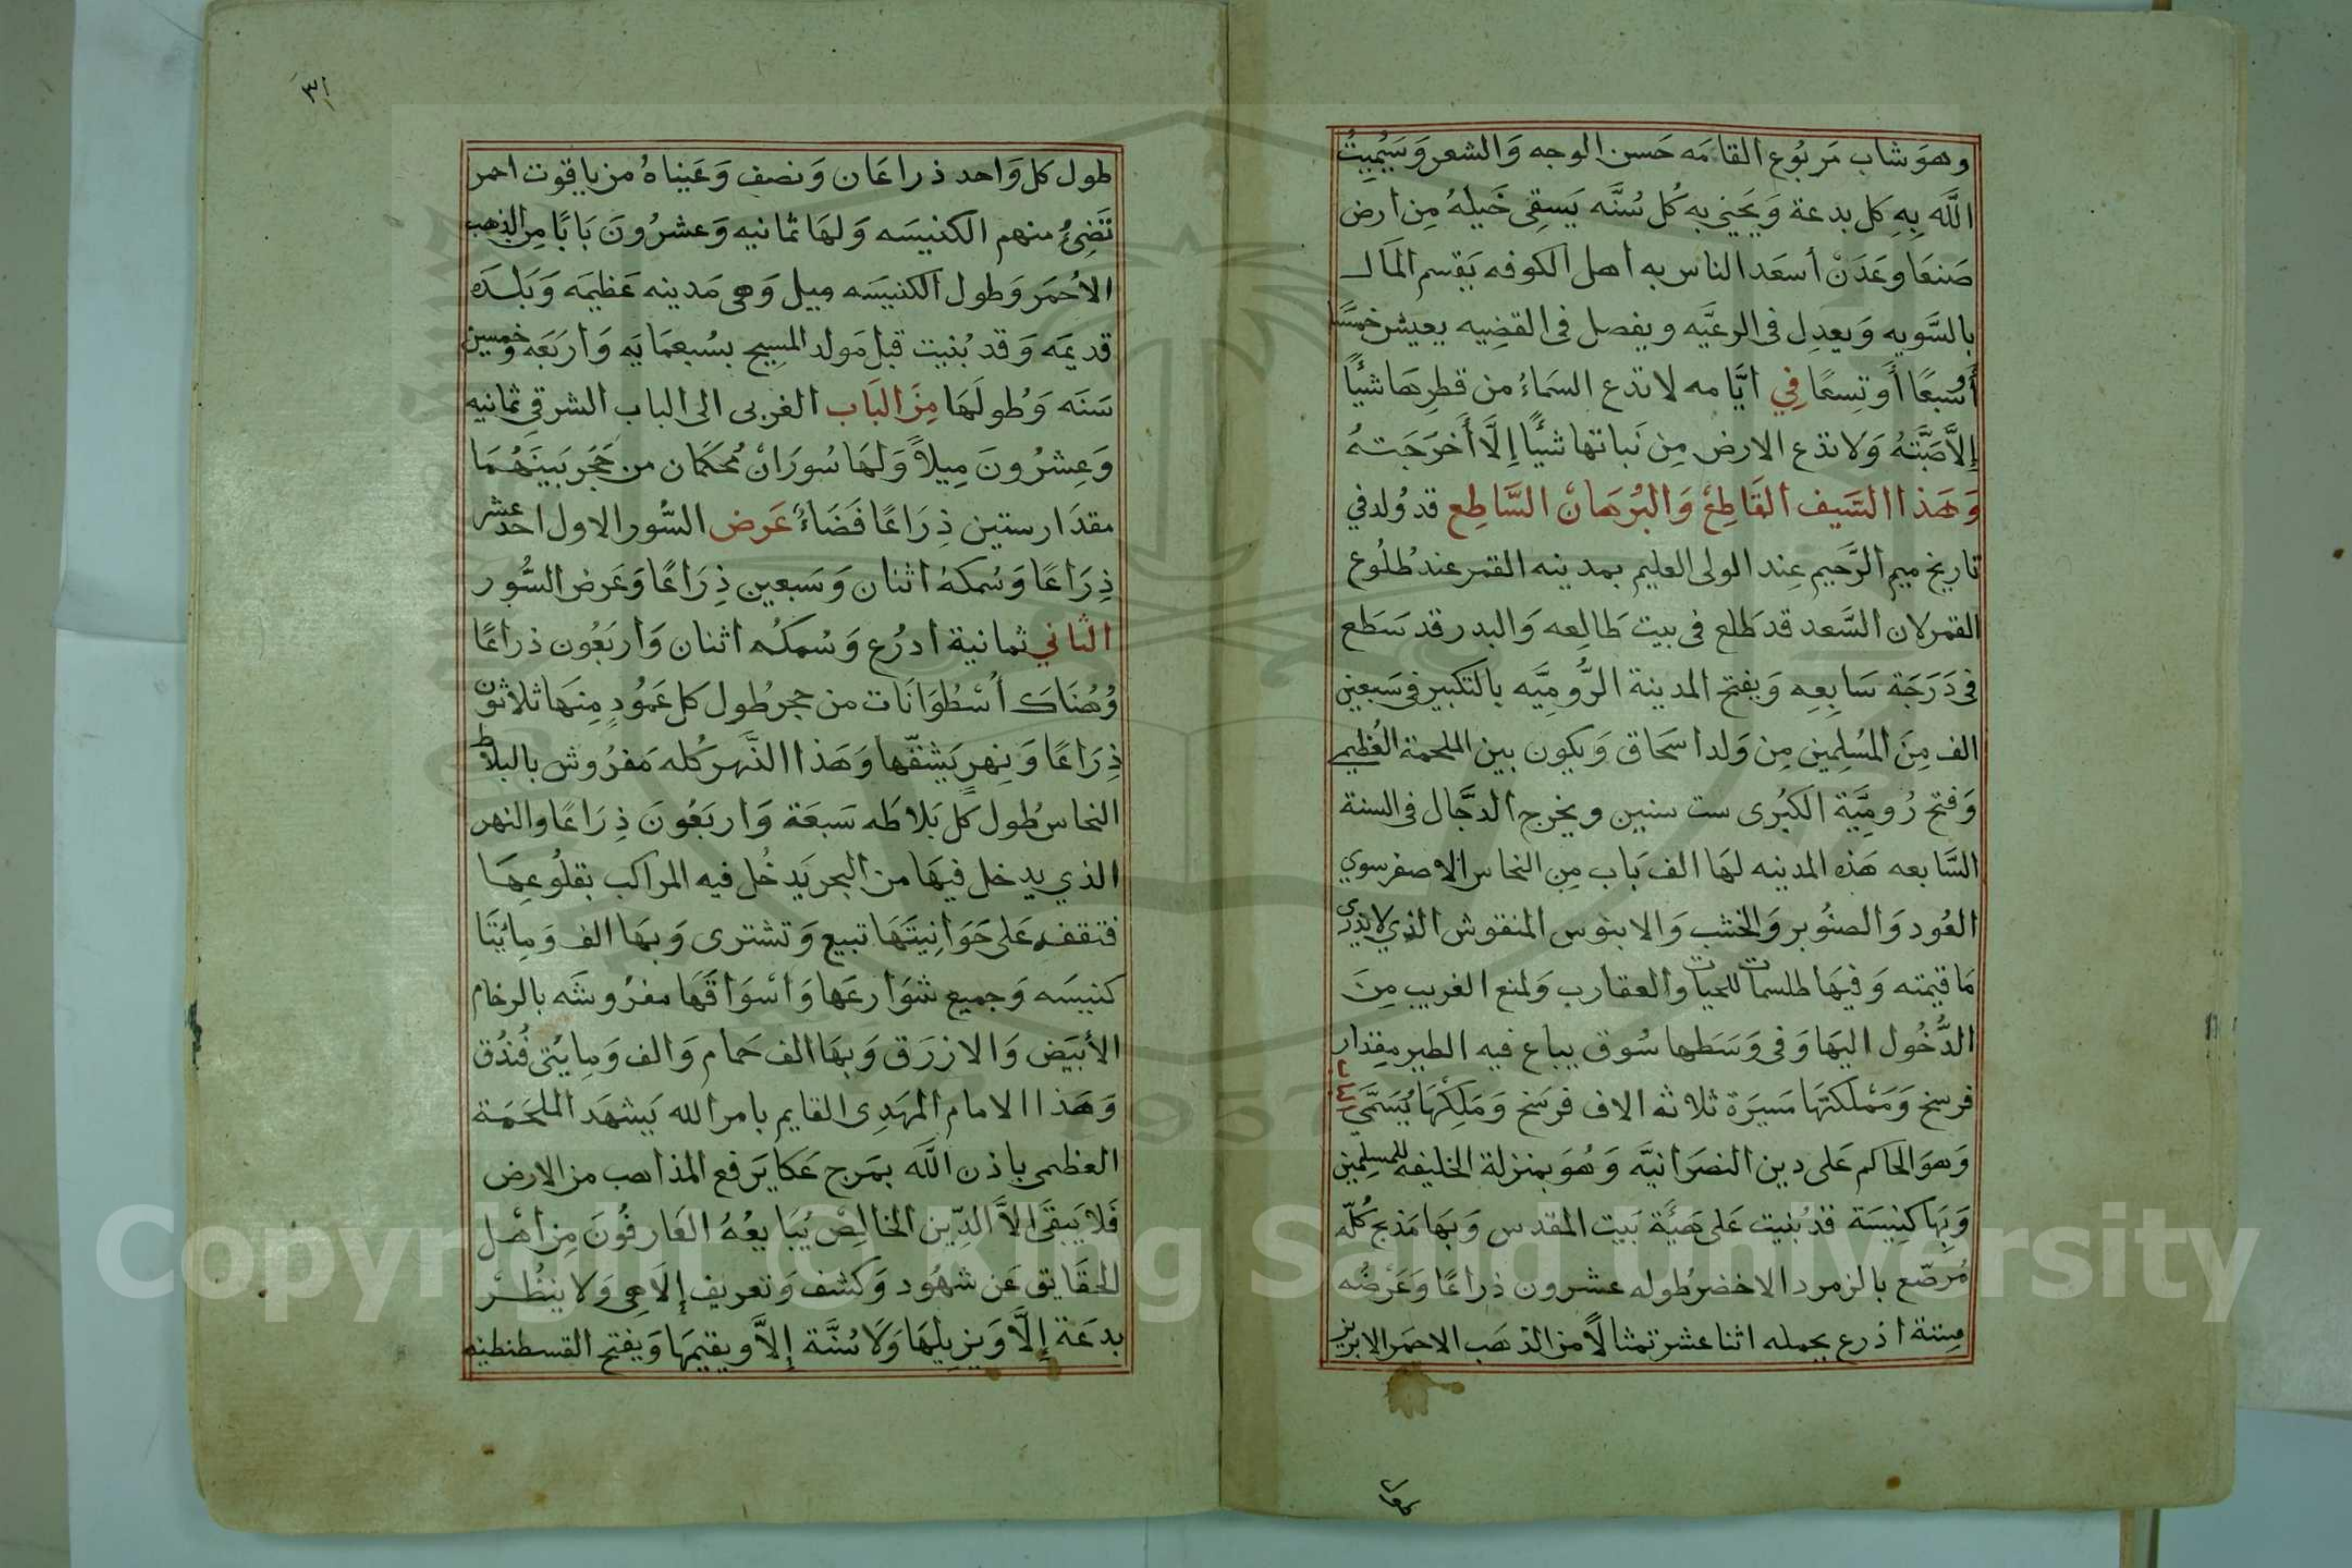 وهوَ شاب مَربُوع القامَه حَسن الوجه وَالشعر وَسَيُمِيتُ
اللَّه بِهِ كل بدعة وَيحيي به كُل سُنَّه يَسقِى خَيلهُ مِن ارض
صَنعَا وعَدَنْ أسعَد الناس به أهل الكوفه يَقسم المَال
بالسَّويه وَيعدِل فى الرعيَّه ويفصل فى القضِيه يعيش خمسًا
أوسَبعًا أَو تِسعًا فِي ايَّامه لا تدع السمَاءُ من قطرِهَا شئًا
إلاَّ صَبَّتهُ وَلا تدَع الارض مِن نَباتها شئًا إِلَّا أَخرَجَتهُ
وَهَذا السَّيف القَاطِعْ وَالبُرهَانْ السَّاطِع قد وُلد في
تاريخ ميم الرَّحيم عِند الولى العليم بمدينه القمر عند طُلُوع
القمر لان السَّعد قد طَلع فى بيت طَالِعه وَالبدر قد سَطع
فى دَرَجَة سَابِعِه وَيفتح المدينة الرُّومِيَّه بالتكبير فى سَبعين
الف مِنَ المُسلِمين مِن وَلد اسحَاق وَيكون بين الملحمة العُظيمى
وَفتح رُومِيَّة الكبُرى ست سنين ويخرج الدجَّال فى السنة
السَّابعه هَذه المدينه لهَا الف بَاب مِن النحاس الاصفر سوي
العُود وَالصنُوبر وَالخشب وَالابنوس المنقوش الذي لا يدرى
مَا قيمته وَفيهَا طلسمات للحيات والعقارب وَلمنع الغريب مِنَ
الدُّخُول اليهَا وَفى وَسَطها سُوق يباع فيه الطير مِقدَار
فرسخ وَمَملكتهَا مَسيَرة ثلاثه الاف فرسَخ وَمَلِكُهَا يُسَمَّي
وَهوَ الحاكم عَلى دين النصرَانيَّه وَهُوَ بمنزلة الخليفه للمسلِمين
وَبهَا كنِيسَة قد بُنيت عَلى هَيئَة بَيت المقدس وَبهَا مَذبح كُلّه
مُرصّع بالزمرد الاخضر طُوله عشرون ذراعًا وَعَرْضُه
سِتة اذرع يحمله اثنا عشر تمثالًا من الذهَب الاحمَر الابريز
طول كل وَاحد ذراعَان وَنصف وَعَيناهُ من ياقوت احمر
تضِئُ منهم الكنيسَه وَلهَا ثمانيه وَعشرُونَ بَابًا مِن الذهب
الاُحمَر وَطول الكنيسَه ميل وَهى مَدينه عَظيمَه وَبَلدَه
قديمَه وَقد بُنيت قبل مَولد المسِيح بسُبعمَايَه وَاربَعَه وخمسين
سَنَه وَطولَهَا مِنَ البَاب الغربى الى الباب الشرقي ثمانيه
وَعِشرُونَ مِيلاً وَلَهَا سُورَانْ مُحكمَان من حَجَر بَينَهُمَا
مقدَار ستين ذِرَاعًا فَضَاءُ عَرض السُّور الاول احد عشر
ذِرَاعًا وَسُمكهُ اثنان وَسَبعين ذِرَاعًا وَعَرض السُّور
الثاني ثمانية ادرُع وَسُمكُه اثنان وَاربَعُون ذراعًا
وُهُنَاكَ اُسْطُوَانَات من حجر طُول كل عَمُودٍ مِنهَا ثلاثون
ذِرَاعًا وَنهرٍ يَشقّها وَهَذا النَّهر كُله مَفرُوش بالبلاط
النحاس طُول كل بَلاطَه سَبعَة وَاربَعُونَ ذِرَاعًا والنهر
الذي يدخل فيهَا من البحر يَدخُل فيه المراكب بقلُوعِهَا
فتقف عَلى حَوَانِيتَهَا تبيع وَتشترى وَبهَا الف وَمايُتَا
كنيسَه وَجميع شوَارعَها وَاسْوَاقَهَا مفرُوشَه بالرخام
الأبيَض وَالازرَق وَبهَا الف حمام وَالف وَمايُتى فُندُق
وَهَذا الامام المهَدِى القايم بامر الله يَشهَد الملحَمَة
العظمى باذن اللَّه بمَرج عَكا يَرفع المذاهب من الارض
فَلا يَبقَى الاَّ الدِّين الخالِصْ يُبَايعُهُ العَارفُونَ مِن اهْل
الحقَايق عَن شهُود وَكشف وَتعريف إلاهى وَلا ينظُرْ
بدعَة إلَّا وَيزيلهَا وَلَا سُنَّة إلاَّ ويقيمَها وَيفتح القسطنطينه